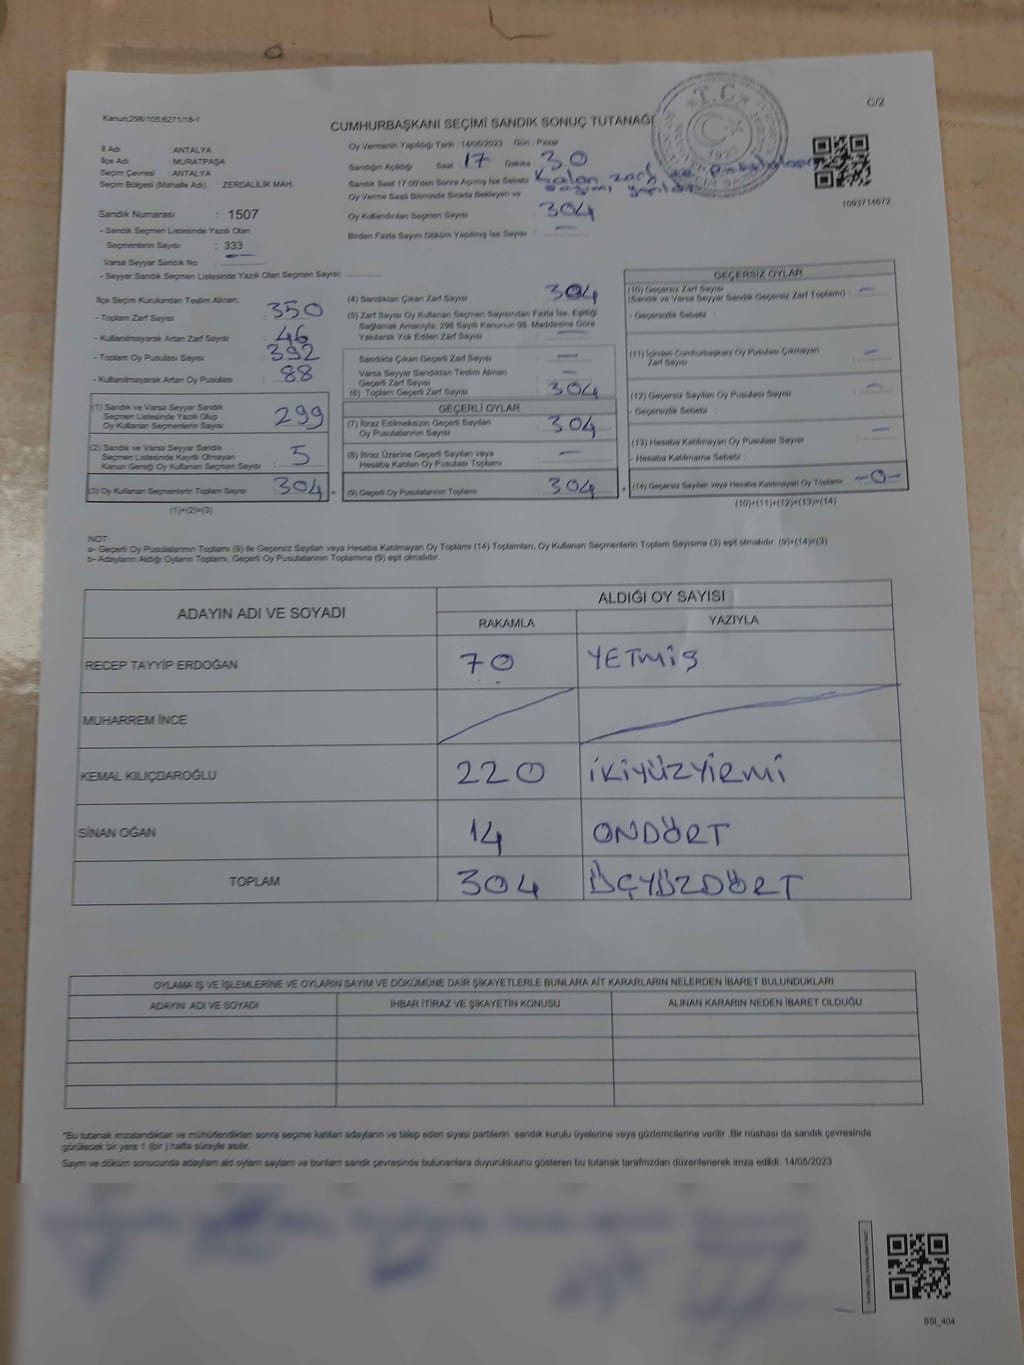 Kanun;298/105;6271/18-1
C/2
CUMHURBAŞKANI SEÇİMİ SANDIK SONUÇ TUTANAĞI
T.C.
1923
1093714672
İl Adı : ANTALYA
İlçe Adı : MURATPAŞA
Seçim Çevresi : ANTALYA
Seçim Bölgesi (Mahalle Adı) : ZERDALİLİK MAH.
Sandık Numarası : 1507
- Sandık Seçmen Listesinde Yazılı Olan
Seçmenlerin Sayısı : 333
Varsa Seyyar Sandık No :
- Seyyar Sandık Seçmen Listesinde Yazılı Olan Seçmen Sayısı:
Oy Vermenin Yapıldığı Tarih : 14/05/2023 Gün : Pazar
Sandığın Açıldığı Saat 17 Dakika : 30
Sandık Saat 17:00'den Sonra Açılmış İse Sebebi : Kalan zarf ve pusulaların
sayımı yapıldı
Oy Verme Saati Bitiminde Sırada Bekleyen ve
Oy Kullandırılan Seçmen Sayısı : 304
Birden Fazla Sayım Döküm Yapılmış İse Sayısı : —
İlçe Seçim Kurulundan Teslim Alınan;
- Toplam Zarf Sayısı : 350
- Kullanılmayarak Artan Zarf Sayısı : 46
- Toplam Oy Pusulası Sayısı : 392
- Kullanılmayarak Artan Oy Pusulası : 88
(1) Sandık ve Varsa Seyyar Sandık
Seçmen Listesinde Yazılı Olup
Oy Kullanan Seçmenlerin Sayısı : 299
(2) Sandık ve Varsa Seyyar Sandık
Seçmen Listesinde Kayıtlı Olmayan
Kanun Gereği Oy Kullanan Seçmen Sayısı : 5
(3) Oy Kullanan Seçmenlerin Toplam Sayısı : 304
(1)+(2)=(3)
(4) Sandıktan Çıkan Zarf Sayısı : 304
(5) Zarf Sayısı Oy Kullanan Seçmen Sayısından Fazla İse, Eşitliği
Sağlamak Amacıyla, 298 Sayılı Kanunun 98. Maddesine Göre
Yakılarak Yok Edilen Zarf Sayısı : —
Sandıkta Çıkan Geçerli Zarf Sayısı : —
Varsa Seyyar Sandıktan Teslim Alınan
Geçerli Zarf Sayısı : —
(6) Toplam Geçerli Zarf Sayısı : 304
GEÇERLİ OYLAR
(7) İtiraz Edilmeksizin Geçerli Sayılan
Oy Pusulalarının Sayısı : 304
(8) İtiraz Üzerine Geçerli Sayılan veya
Hesaba Katılan Oy Pusulası Toplamı : —
= (9) Geçerli Oy Pusulalarının Toplamı : 304
GEÇERSİZ OYLAR
(10) Geçersiz Zarf Sayısı
(Sandık ve Varsa Seyyar Sandık Geçersiz Zarf Toplamı) : —
- Geçersizlik Sebebi :
(11) İçinden Cumhurbaşkanı Oy Pusulası Çıkmayan
Zarf Sayısı : —
(12) Geçersiz Sayılan Oy Pusulası Sayısı : —
- Geçersizlik Sebebi :
(13) Hesaba Katılmayan Oy Pusulası Sayısı : —
- Hesaba Katılmama Sebebi :
+ (14) Geçersiz Sayılan veya Hesaba Katılmayan Oy Toplamı : -0-
(10)+(11)+(12)+(13)=(14)
NOT:
a- Geçerli Oy Pusulalarının Toplamı (9) ile Geçersiz Sayılan veya Hesaba Katılmayan Oy Toplamı (14) Toplamları, Oy Kullanan Seçmenlerin Toplam Sayısına (3) eşit olmalıdır. (9)+(14)=(3)
b- Adayların Aldığı Oyların Toplamı, Geçerli Oy Pusulalarının Toplamına (9) eşit olmalıdır.
ADAYIN ADI VE SOYADI ALDIĞI OY SAYISI
RAKAMLA YAZIYLA
RECEP TAYYİP ERDOĞAN 70 YETMİŞ
MUHARREM İNCE
KEMAL KILIÇDAROĞLU 220 İKİYÜZYİRMİ
SİNAN OĞAN 14 ONDÖRT
TOPLAM 304 ÜÇYÜZDÖRT
OYLAMA İŞ VE İŞLEMLERİNE VE OYLARIN SAYIM VE DÖKÜMÜNE DAİR ŞİKAYETLERLE BUNLARA AİT KARARLARIN NELERDEN İBARET BULUNDUKLARI
ADAYIN ADI VE SOYADI İHBAR İTİRAZ VE ŞİKAYETİN KONUSU ALINAN KARARIN NEDEN İBARET OLDUĞU
"Bu tutanak imzalandıktan ve mühürlendikten sonra seçime katılan adayların ve talep eden siyasi partilerin sandık kurulu üyelerine veya gözlemcilerine verilir .Bir nüshası da sandık çevresinde
görülecek bir yere 1 (bir ) hafta süreyle asılır.
Sayım ve döküm sonucunda adayların ald oyların sayların ve bunların sandk çevresinde bulunanlara duyurulduunu gösteren bu tutanak tarafımzdan düzenlenerek imza edildi. 14/05/2023
SSI_404